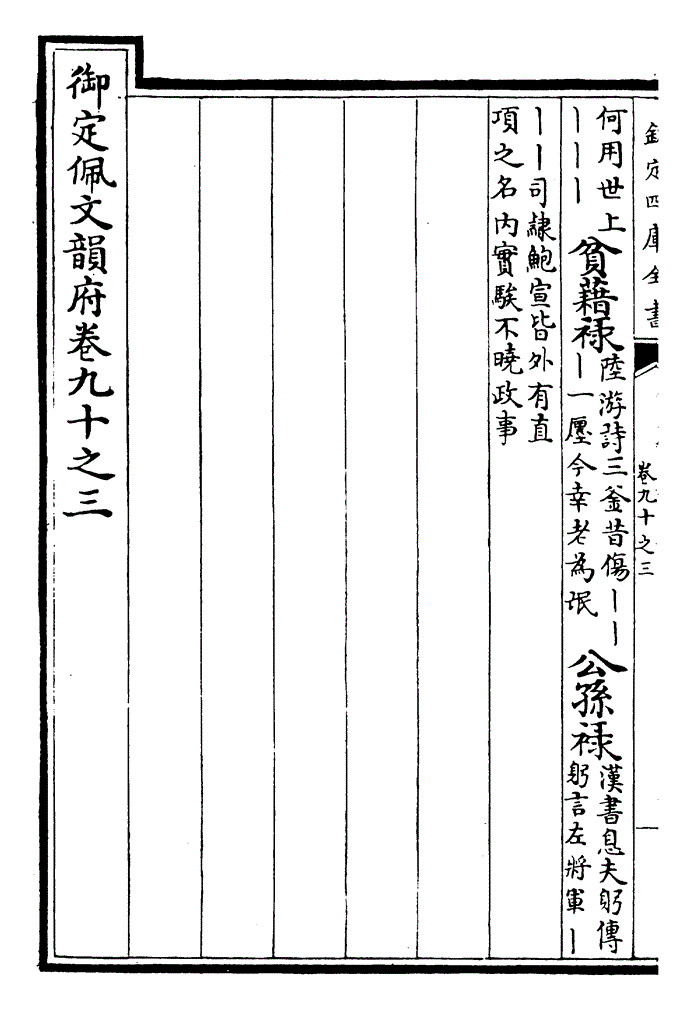 欽定四庫全書
卷九十之三
何用世上
丨丨丨
貧藉祿
陸游詩三釜昔傷丨丨
丨一廛今幸老為氓
公孫祿
漢書息夫躬傳
躬言左將軍丨
丨丨司隸鮑宣皆外有直
項之名内實騃不曉政事
御定佩文韻府卷九十之三